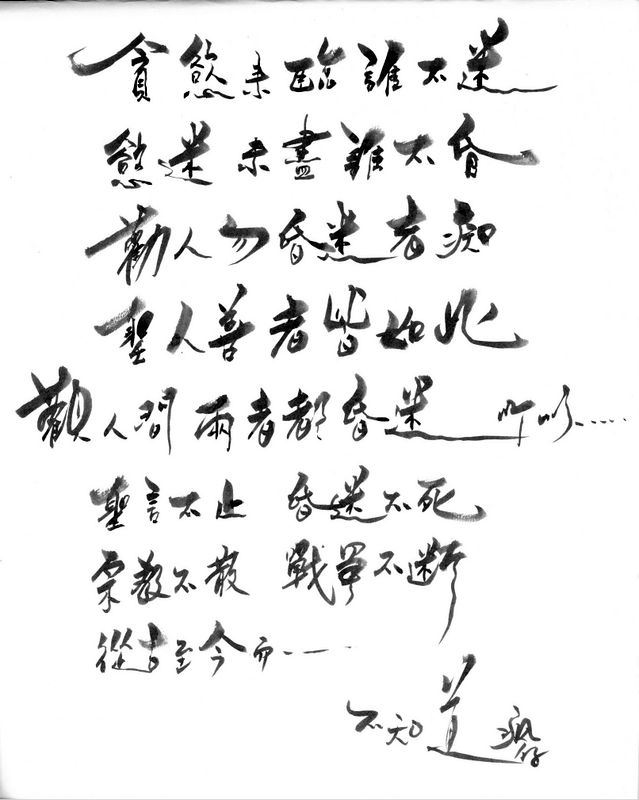 貪慾未臨誰不迷
慾迷未盡誰不昏
勸人勿昏迷者痴
聖人善者皆如此
觀人間兩者都昏迷 所以....
聖言不止 昏迷不死
宗教不散 戰爭不斷
從古至今而.——....
不知道